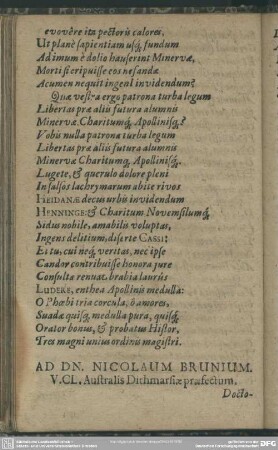 evovêre ita pectoris calores,
Ut planè sapientiam usq; fundum
Ad imum è dolio hauserint Minervæ,
Morti si eripuisse eos nefandæ
Acumen nequit ingenî invidendum?
Quæ vestra ergo patrona turba legum
Libertas præ aliis futura alumnis
Minervæ Charitumq; Apollinisq;?
Vobis nulla patrona turba legum
Libertas præ aliis futura alumnis
Minervæ Charitumq; Apollinisq;.
Lugete, & querulo dolore pleni
In salsos lachrymarum abite rivos
HEIDANÆ decus urbis invidendum
HENNINGE: & Charitum Novensilumq;
Sidus nobile, amabilis voluptas,
Ingens delitium, diserte CASSI;
Et tu, cui neq; veritas, nec ipse
Candor contribuisse honora jure
Consulta renuat, brabia lauris
LUDERE, enthea Apollinis medulla:
O Phœbi tria corcula, ô amores,
Suadæ quisq; medulla pura, quisq;
Orator bonus, & probatus Histor,
Tres magni unius ordinis magistri.
AD DN. NICOLAUM BRUNIUM.
V.CL. Australis Dithmarsiæ præfectum.
Docto-